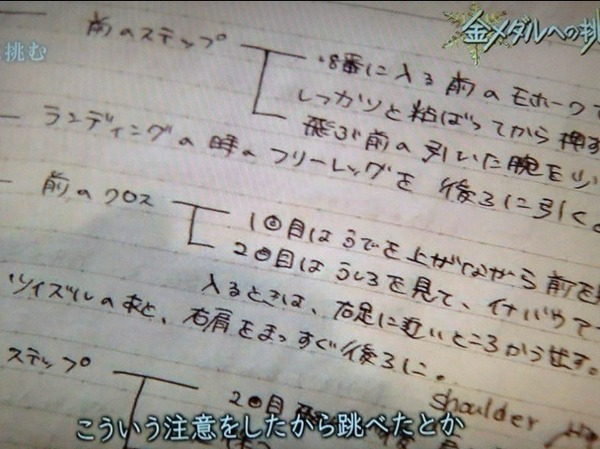 金メダルへの挑
挑む
前のステップ
・8番に入る前のモホーク
しっかりと粘ばってから押す
飛ぶ前の引いた腕を少
ランディングの時のフリーレッグを後ろに引く。
前のクロス
1回目はうでを上がながら前を見
2回目はうしろを見て、イナバウアー
入るときは、右足に近いところから出す。
ツイズルのあと、右肩をまっすぐ後ろに。
shoulder
ステップ
2回目
こういう注意をしたから跳べたとか